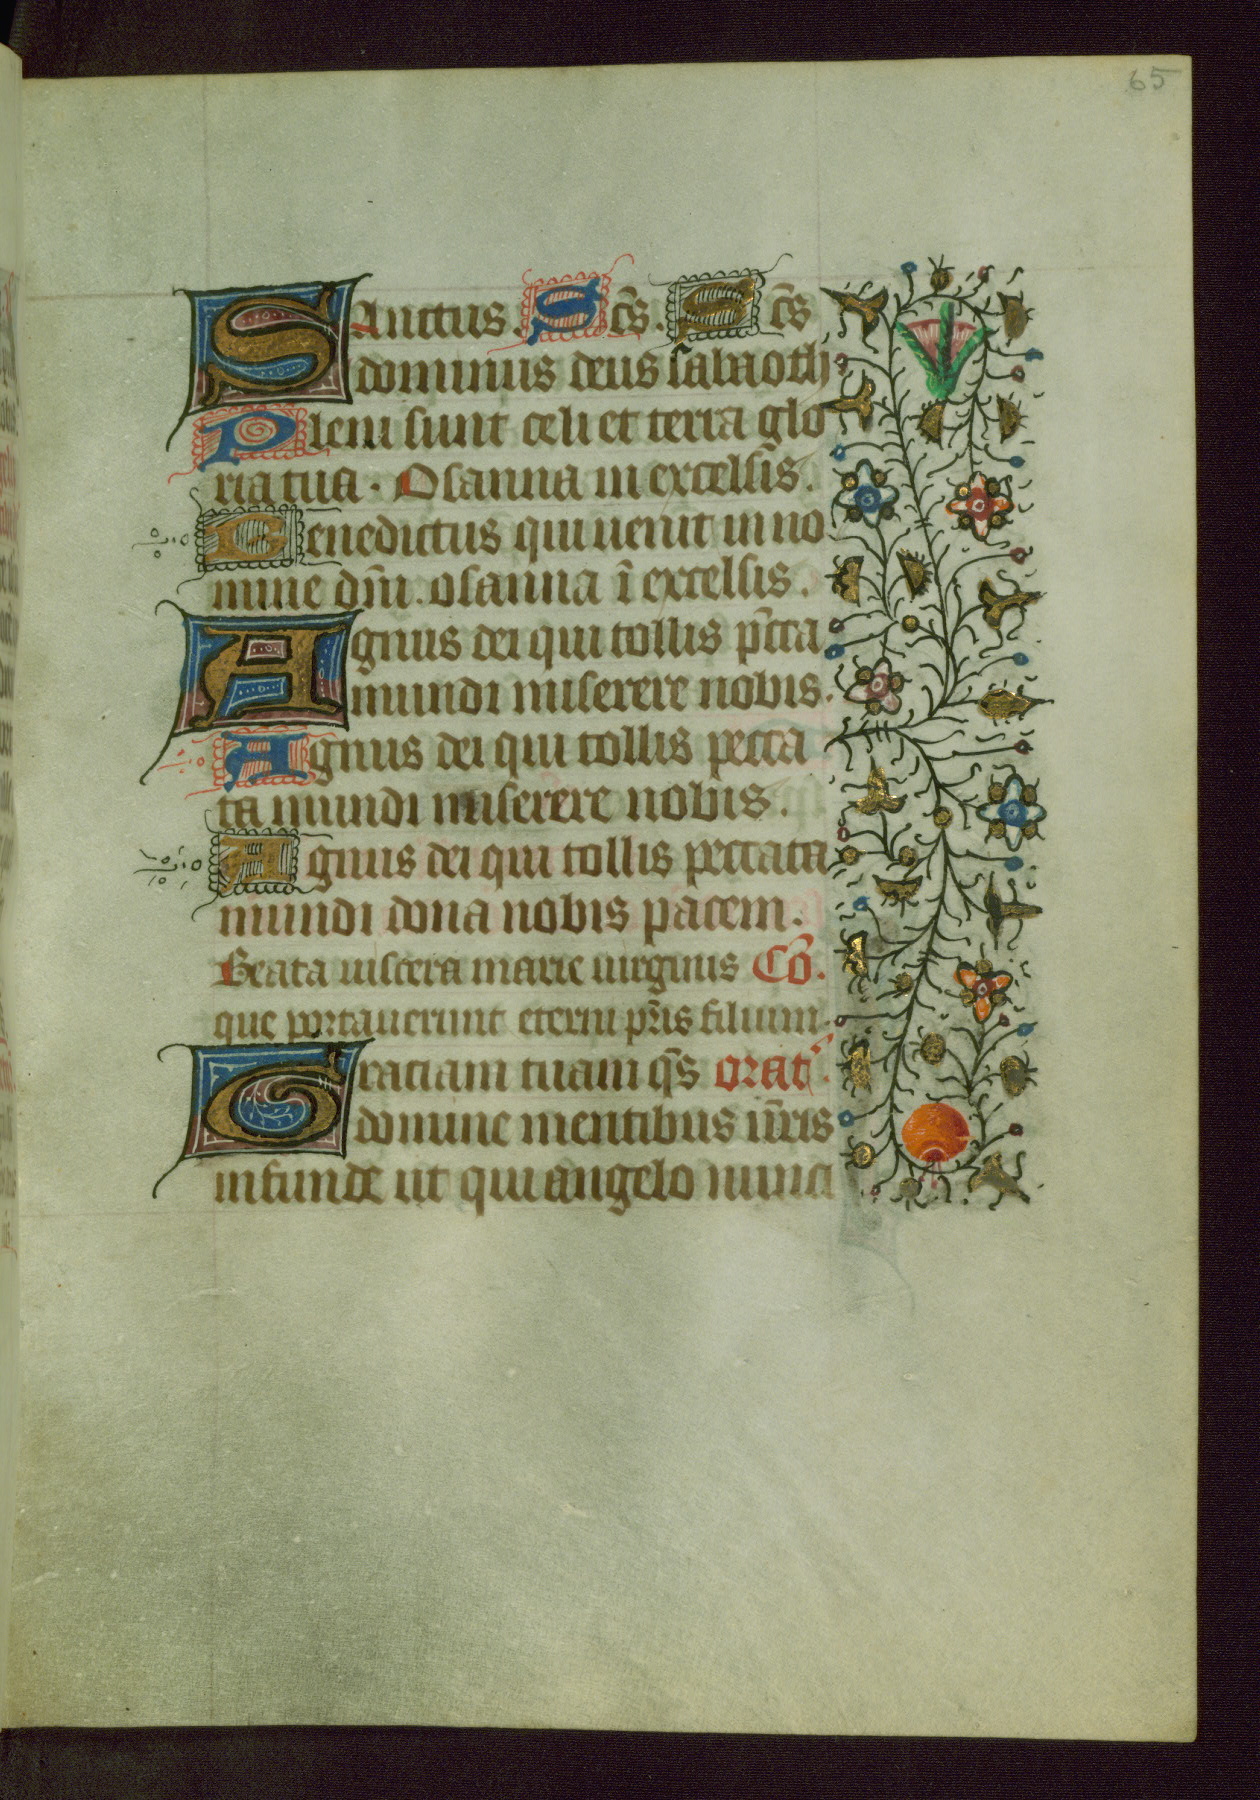 65
Sanctus. Sc̄s. Sc̄s
dominus deus sabaoth
Pleni sunt celi et terra glo
ria tua. Osanna in excelsis.
Benedictus qui uenit in no
mine dn̄i. osanna ī excelsis.
Agnus dei qui tollis pc̄ca
mundi miserere nobis.
Agnus dei qui tollis pecca
ta mundi miserere nobis.
Agnus dei qui tollis peccata
mundi dona nobis pacem.
Beata uiscera marie uirginis Cō.
que portauerunt eterni pr̄is filium.
Graciam tuam qs̄ orat.
domine mentibus nr̄is
infunde ut qui angelo nunci